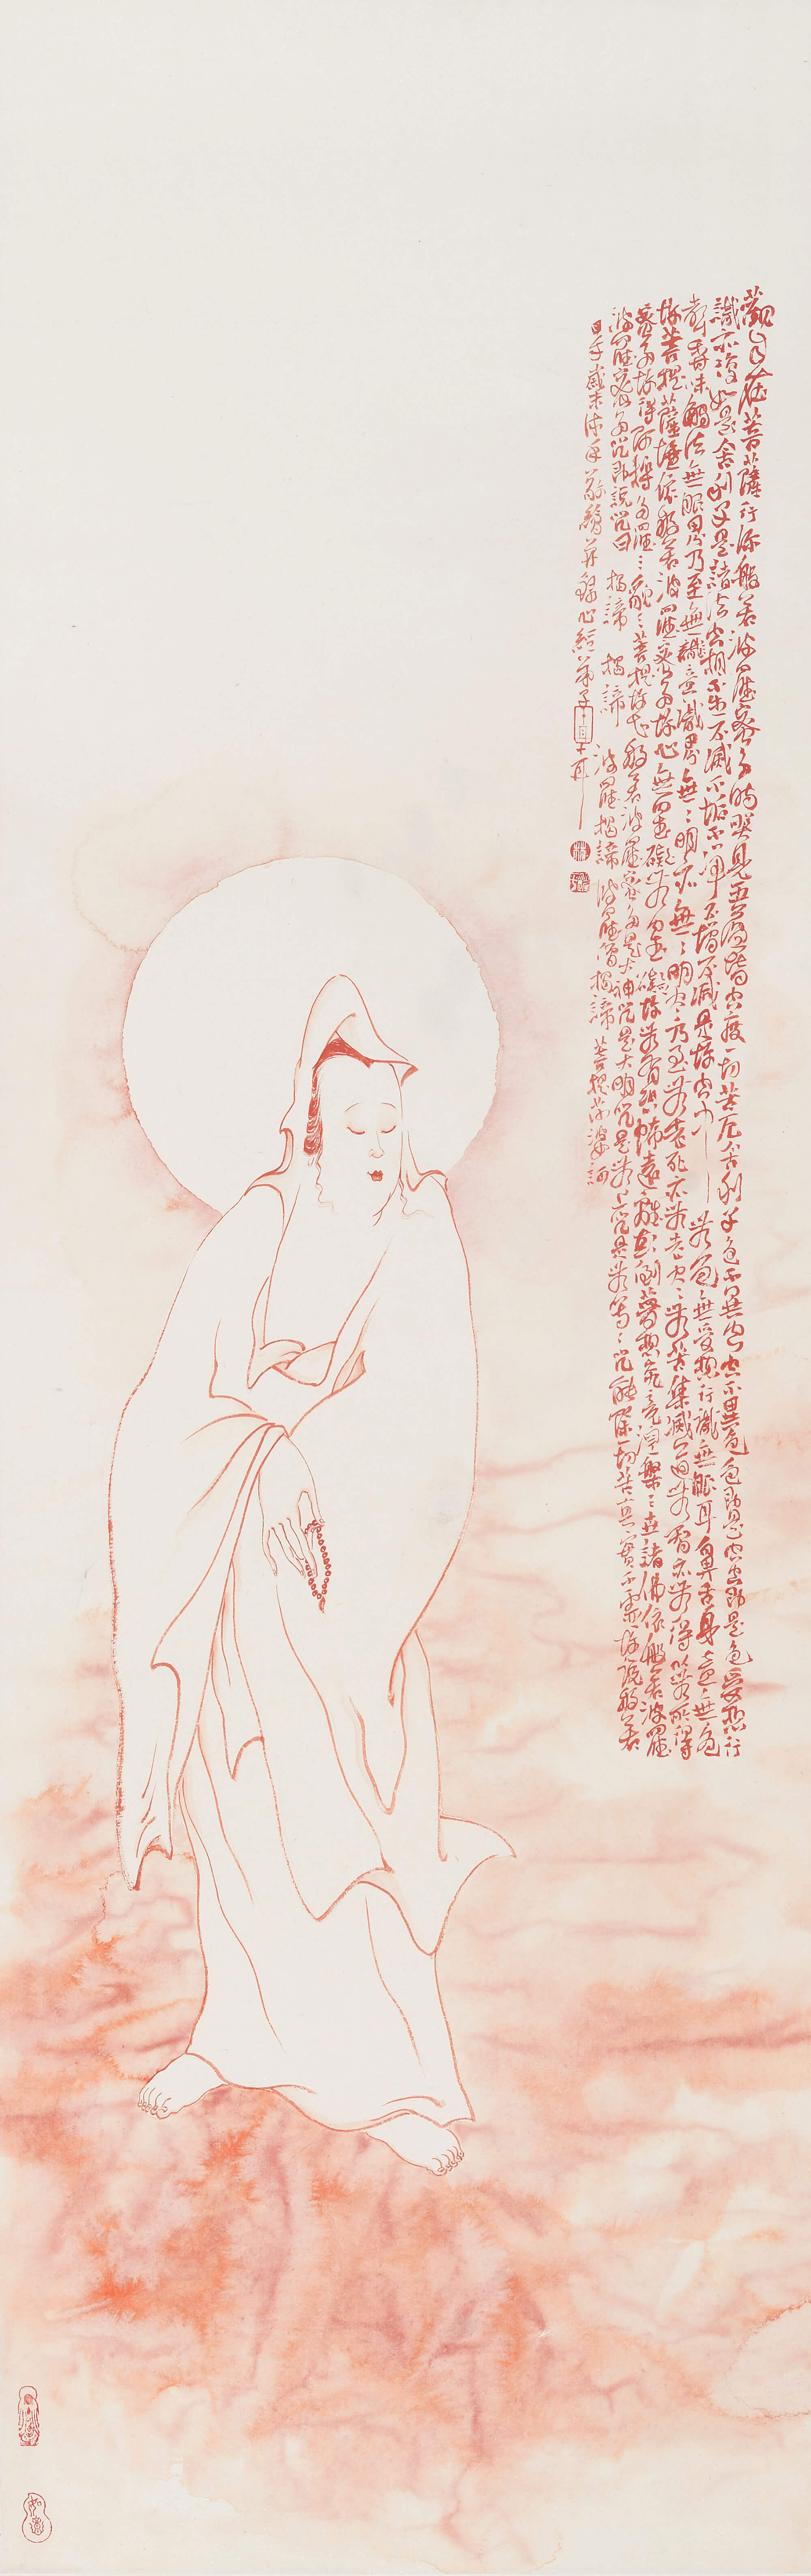 觀自在菩薩行深般若波羅蜜多時照見五蘊皆空度一切苦厄舍利子色不異空空不異色色即是空空即是色受想行
識亦復如是舍利子是諸法空相不生不滅不垢不淨不增不減是故空中無色無受想行識無眼耳鼻舌身意無色
聲香味觸法無眼界乃至無識意識界無々明亦無々明盡乃至無老死亦無老死盡無苦集滅道無智亦無得以無所得
故菩提薩埵依般若波羅蜜多故心無罣礙無罣礙故無有恐怖遠離顛倒夢想究竟涅槃三世諸佛依般若波羅
蜜多故得阿耨多羅三藐三菩提故知般若波羅蜜多是大神咒是大明咒是無上咒是無等々咒能除一切苦真實不虛故說般若
波羅蜜多咒即說咒曰 揭諦 揭諦 波羅揭諦 波羅僧揭諦 菩提薩婆訶
歲末沐手敬繪并錄心經弟子